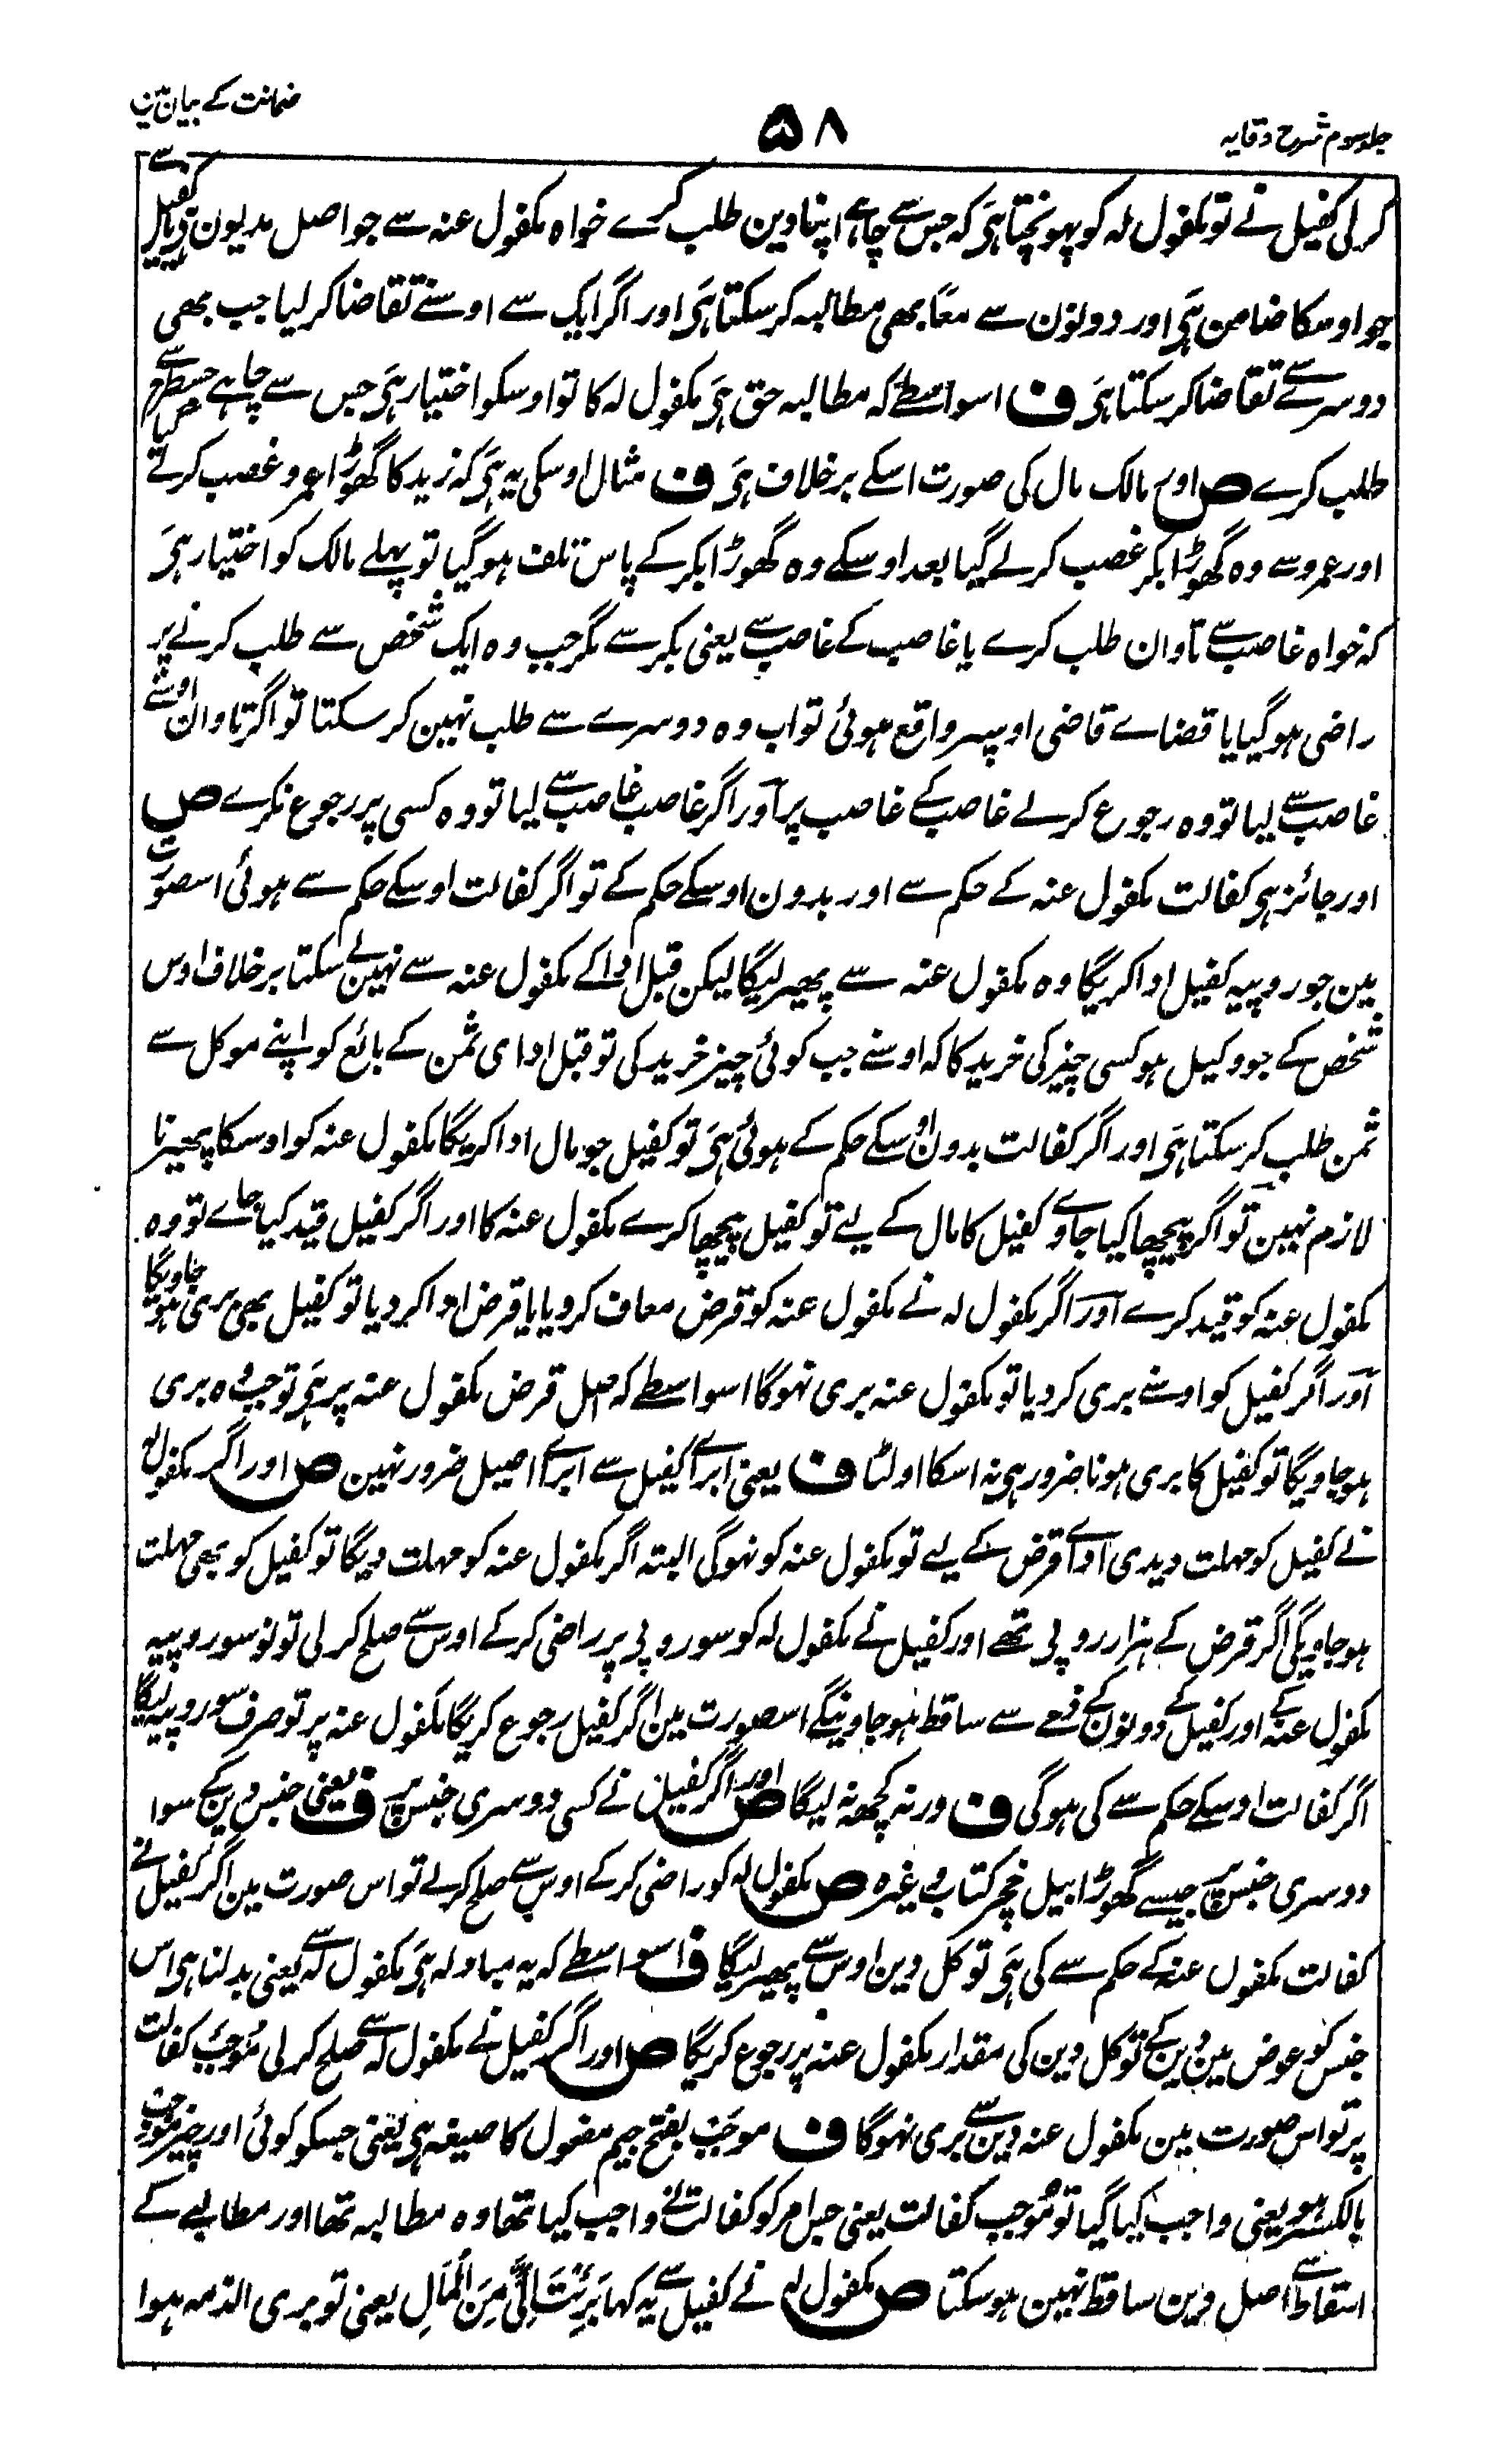 جلد سوم شرح وقایہ
۵۸
ضمانت کے بیان مین
کرلی کفیل نے تو مکفول لہ کو پہونچتا ہَی کہ جس سے چاہے اپنا دین طلب کرے خواہ مکفول عنہ سے جو اصل مدیون ہی یا کفیل سے
جو اوسکا ضامن ہَی اور دونون سے معًا بھی مطالبہ کرسکتا ہَی اور اگر ایک سے اوسنے تقاضا کرلیا جب بھی
دوسرے سے تقاضا کرسکتا ہَی ف اسواسطے کہ مطالبہ حق ہَی مکفول لہ کا تو اوسکو اختیار ہَی جس سے چاہے جسطرح سے چاہے
طلب کرے ص اور مالک مال کی صورت اسکے برخلاف ہَی ف مثال اوسکی یہ ہَی کہ زید کا گھوڑا عمرو غصب کرے
اور عمرو سے وہ گھوڑا بکر غصب کرلے گیا بعد اوسکے وہ گھوڑا بکر کے پاس تلف ہوگیا تو پہلے مالک کو اختیار ہَی
کہ خواہ غاصب سے تاوان طلب کرے یا غاصب کے غاصب سے یعنی بکر سے مگر جب وہ ایک شخص سے طلب کرنے پر
راضی ہوگیا یا قضاے قاضی اوسپر واقع ہوئی تو اب وہ دوسرے سے طلب نہین کرسکتا تو اگر تاوان اوسنے
غاصب سے لیا تو وہ رجوع کرلے غاصب کے غاصب پر اور اگر غاصب غاصب سے لیا تو وہ کسی پر رجوع نکرے ص
اور جائز ہی کفالت مکفول عنہ کے حکم سے اور بدون اوسکے حکم کے تو اگر کفالت اوسکے حکم سے ہوئی اسصورت
مین جو روپیہ کفیل ادا کریگا وہ مکفول عنہ سے پھیر لیگا لیکن قبل ادا کے مکفول عنہ سے نہین لے سکتا برخلاف اوس
شخص کے جو وکیل ہو کسی چیز کی خرید کا کہ اوسنے جب کوئی چیز خرید کی تو قبل ادای ثمن کے بائع کو اپنے موکل سے
ثمن طلب کرسکتا ہَی اور اگر کفالت بدون اوسکے حکم کے ہوئی ہَی تو کفیل جو مال ادا کریگا مکفول عنہ کو اوسکا پھیرنا
لازم نہین تو اگر پیچھا کیا جاوے کفیل کا مال کے لیے تو کفیل پیچھا کرے مکفول عنہ کا اور اگر کفیل قید کیا جاے تو وہ
مکفول عنہ کو قید کرے اور اگر مکفول لہ نے مکفول عنہ کو قرض معاف کردیا یا قرض ادا کردیا تو کفیل بھی بری ہو جاویگا
اور اگر کفیل کو اوسنے بری کردیا تو مکفول عنہ بری نہوگا اسواسطے کہ اصل قرض مکفول عنہ پر ہَی تو جب وہ بری
ہوجاویگا تو کفیل کا بری ہونا ضرور ہی نہ اسکا اولٹا ف یعنی ابراے کفیل سے ابراے اصیل ضرور نہین ص اور اگر مکفول لہ
نے کفیل کو مہلت دیدی اداے قرض کے لیے تو مکفول عنہ کو نہوگی البتہ اگر مکفول عنہ کو مہلت دیگا تو کفیل کو بھی مہلت
ہوجاویگی اگر قرض کے ہزار روپی تھے اور کفیل نے مکفول لہ کو سو روپی پر راضی کرکے اوس سے صلح کرلی تو نو سو روپیہ
مکفول عنہ کے اور کفیل کے دونون کے ذمے سے ساقط ہوجاوینگے اسصورت مین اگر کفیل رجوع کریگا مکفول عنہ پر تو صرف سو روپیہ لیگا
اگر کفالت اوسکے حکم سے کی ہوگی ف ورنہ کچھ نہ لیگا ص اور اگر کفیل نے کسی دوسری جنس پر ف یعنی جنس دین کے سوا
دوسری جنس پر جیسے گھوڑا بیل خچر کتاب وغیرہ ص مکفول لہ کو راضی کرکے اوس سے صلح کرلے تو اس صورت مین اگر کفیل نے
کفالت مکفول عنہ کے حکم سے کی ہَی تو کل دین اوس سے پھیر لیگا ف اسواسطے کہ یہ مبادلہ ہَی مکفول لہ سے یعنی بدلنا ہی اس
جنس کو عوض مین دین کے تو کل دین کی مقدار مکفول عنہ پر رجوع کریگا ص اور اگر کفیل نے مکفول لہ سے صلح کرلی مُوجَب کفالت
پر تو اس صورت مین مکفول عنہ دین سے بری نہوگا ف موجَب بفتح جیم مفعول کا صیغہ ہی یعنی جسکو کوئی اور چیز موجب
بالکسر ہو یعنی واجب کیا گیا تو مُوجب کفالت یعنی جس امر کو کفالت نے واجب کیا تھا وہ مطالبہ تھا اور مطالبے کے
اسقاط سے اصل دین ساقط نہین ہوسکتا ص مکفول لہ نے کفیل سے یہ کہا بَرِئْتَ اِلَیَّ مِنَ الْمَالِ یعنی تو بری الذمہ ہوا